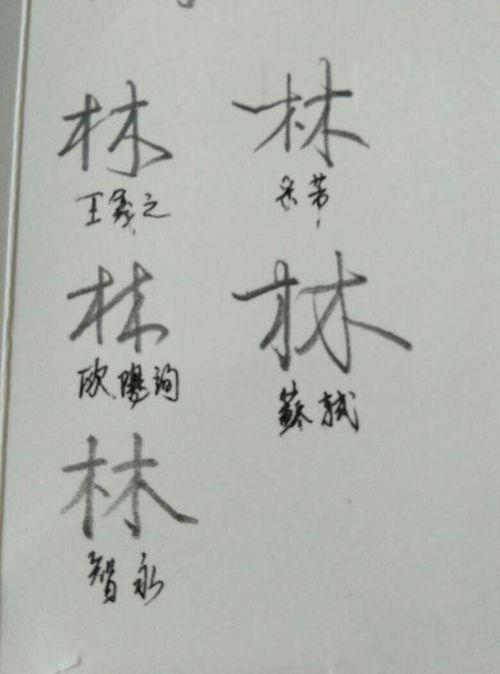 林
王羲之
林
欧陽詢
林
智永
林
米芾
林
蘇軾